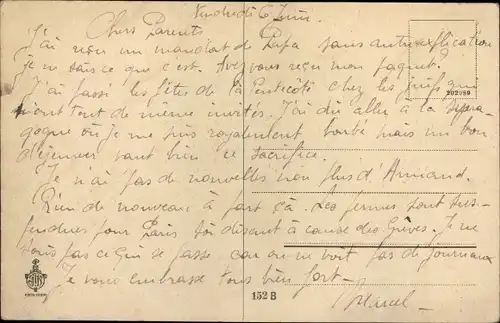 Vendredi 6 Juin
Chers Parents
J'ai reçu un mandat de Papa sans autre explication
je ne sais ce que c'est. Avez vous reçu mon paquet?
J'ai passé les fêtes de la Pentecôte chez les juifs qui
m'ont tout de même invités. J'ai dû aller à la syna
gogue où je me suis royalement barbé mais un bon
déjeuner vaut bien ce sacrifice.
Je n'ai pas de nouvelles non plus d'Armand.
Rien de nouveau à part çà. Les permes sont sus-
pendues pour Paris soi disant à cause des Grèves. Je ne
sais pas ce qui se passe, car on ne voit pas de journaux
Je vous embrasse tous bien fort—
202989
152 B